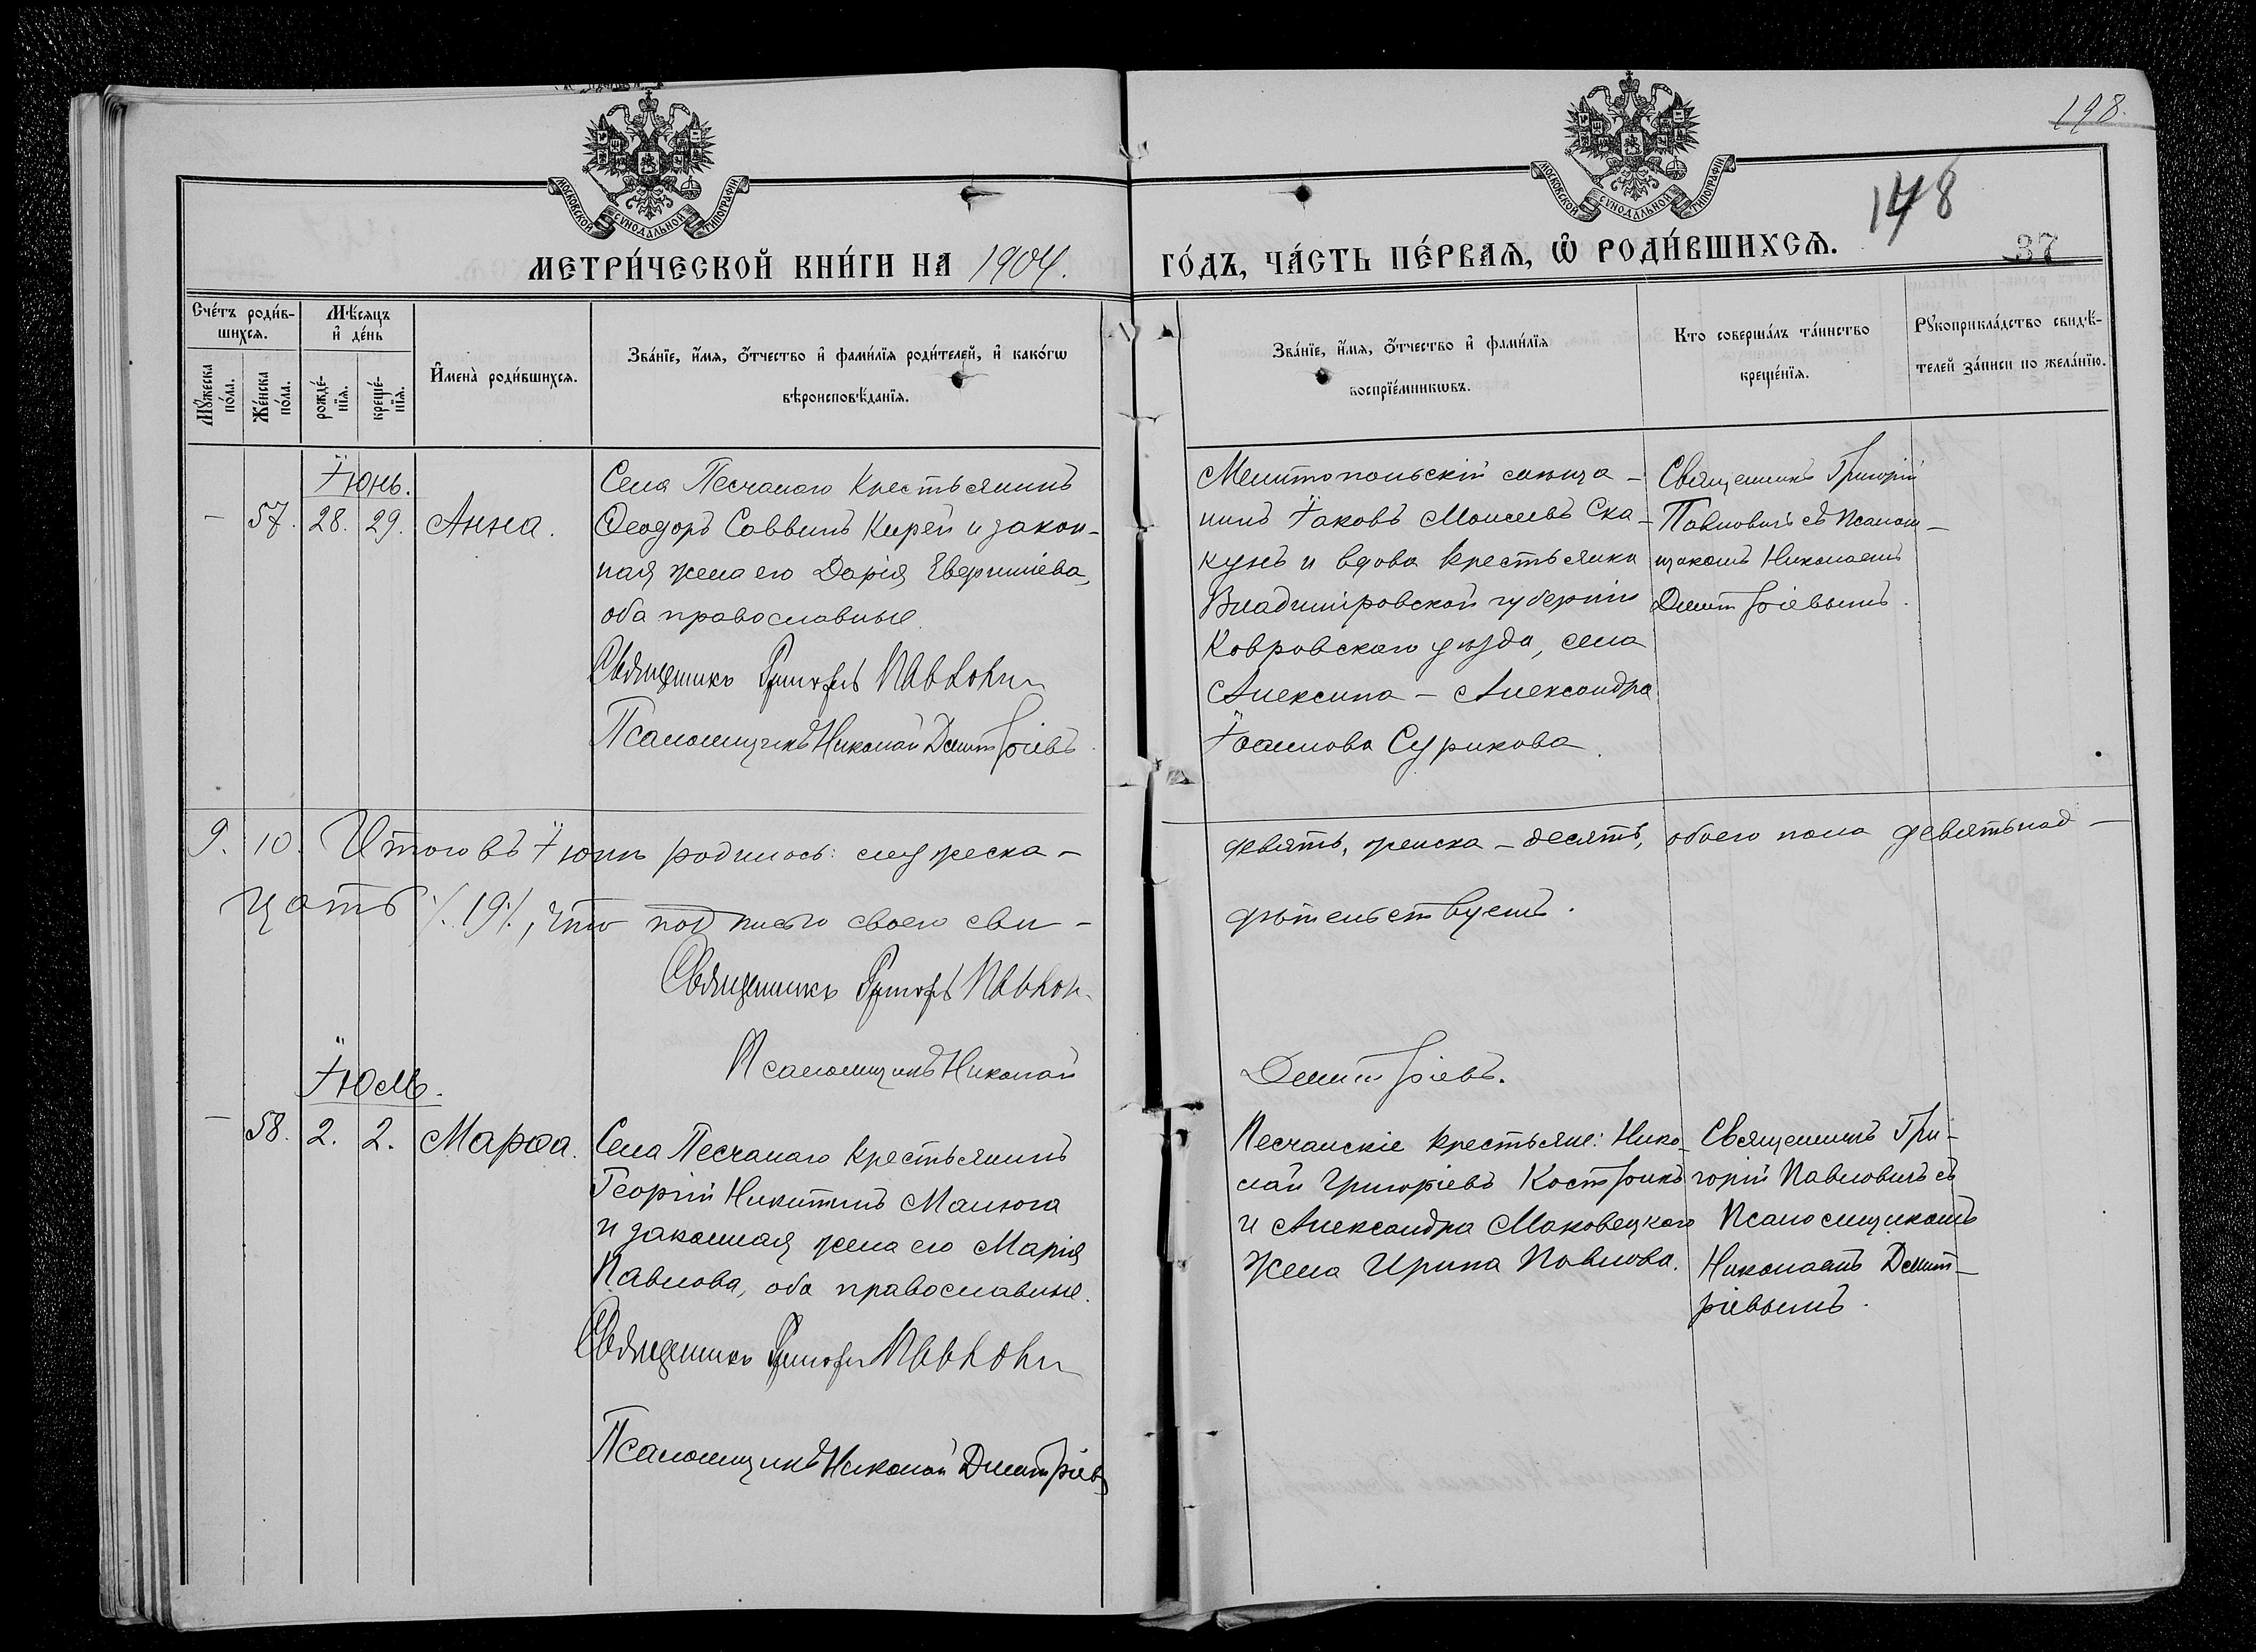 198.
148
37
МОСКОВСКОЙ СУНОДАЛЬНОЙ ТИПОГРАФІИ
МОСКОВСКОЙ СУНОДАЛЬНОЙ ТИПОГРАФІИ
МЕТРИ́ЧЕСКОЙ КНИ́ГИ НА 1904. ГО́ДЪ, ЧА́СТЬ ПЕ́РВАЯ, Ѡ҆ РОДИ́ВШИХСЯ.
Сче́тъ роди́в-
шихся.
Мꙋ́жеска по́ла.
Же́нска по́ла.
Мѣ́сяцъ и҆ де́нь
рожде́-нїя.
креще́-нїя.
И҆мена̀ роди́вшихся.
Зва́нїе, и҆́мя, ѻ҆́тчество и҆ фами́лїя роди́телей, и҆ како́гѡ
вѣроисповѣ́данїя.
Зва́нїе, и҆́мя, ѻ҆́тчество и҆ фами́лїя
воспрїе́мникѡвъ.
Кто соверша́лъ та́инство
креще́нїя.
Рꙋкоприкла́дство свидѣ́-
телей за́писи по жела́нїю.
Іюнь.
— 57. 28. 29. Анна.
Села Песчанаго крестьянинъ
Ѳеодоръ Саввинъ Кирей и закон-
ная жена его Дарія Евфиміева,
оба православные.
Священникъ Григорій Павлович
Псаломщикъ Николай Димитріевъ.
Мелитопольскій мѣща-
нинъ Іаковъ Моисеевъ Ска-
кунъ и вдова крестьянка
Владимірской губерніи
Ковровскаго уѣзда, села
Алексина — Александра
Іоаннова Сурикова.
Священникъ Григорій
Павловичъ съ псалом-
щикомъ Николаемъ
Димитріевымъ.
9. 10. Итого въ Іюнѣ родилось: мужеска — девять, женска — десять, обоего пола девятнад-
цать /.19/., что подписью своею сви- дѣтельствуемъ.
Священникъ Григорій Павлович
Псаломщикъ Николай Димитріевъ.
Іюль.
— 58. 2. 2. Марѳа.
Села Песчанаго крестьянинъ
Георгій Никитинъ Манюга
и законная жена его Марія
Павлова, оба православные.
Священникъ Григорій Павлович
Псаломщикъ Николай Димитріевъ
Песчанскіе крестьяне: Нико-
лай Григоріевъ Костринъ
и Александра Маковецкаго
жена Ирина Павлова.
Священникъ Гри-
горій Павловичъ съ
псаломщикомъ
Николаемъ Димит-
ріевымъ.